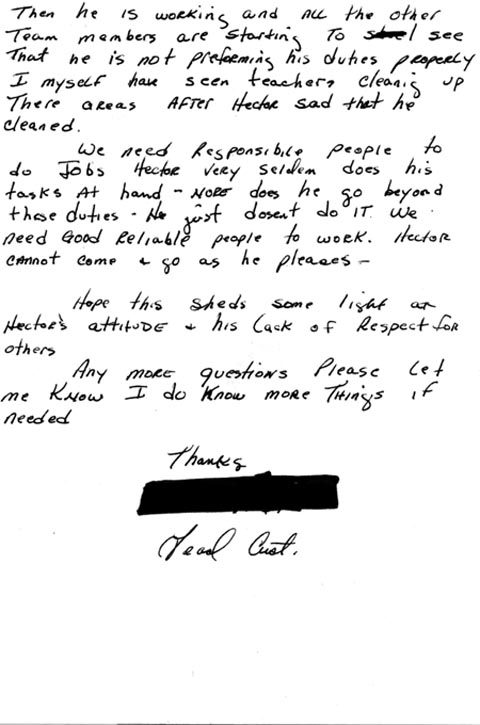 Then he is working and all the other
Team members are starting To see
That he is not preforming his duties properly
I myself have seen teachers cleanig up
There areas AFTER Hector sad that he
cleaned.
We need Responsibile people to
do Jobs Hector very seldem does his
tasks At hand - NORE does he go beyond
those duties - He just dosent do IT. We
need Good Reliable people to work. Hector
cannot come + go as he pleases -
Hope this sheds some light on
Hector's attitude + his Lack of Respect for
others
Any more questions Please Let
me Know I do Know more Things if
needed
Thanks
Lead Cust.